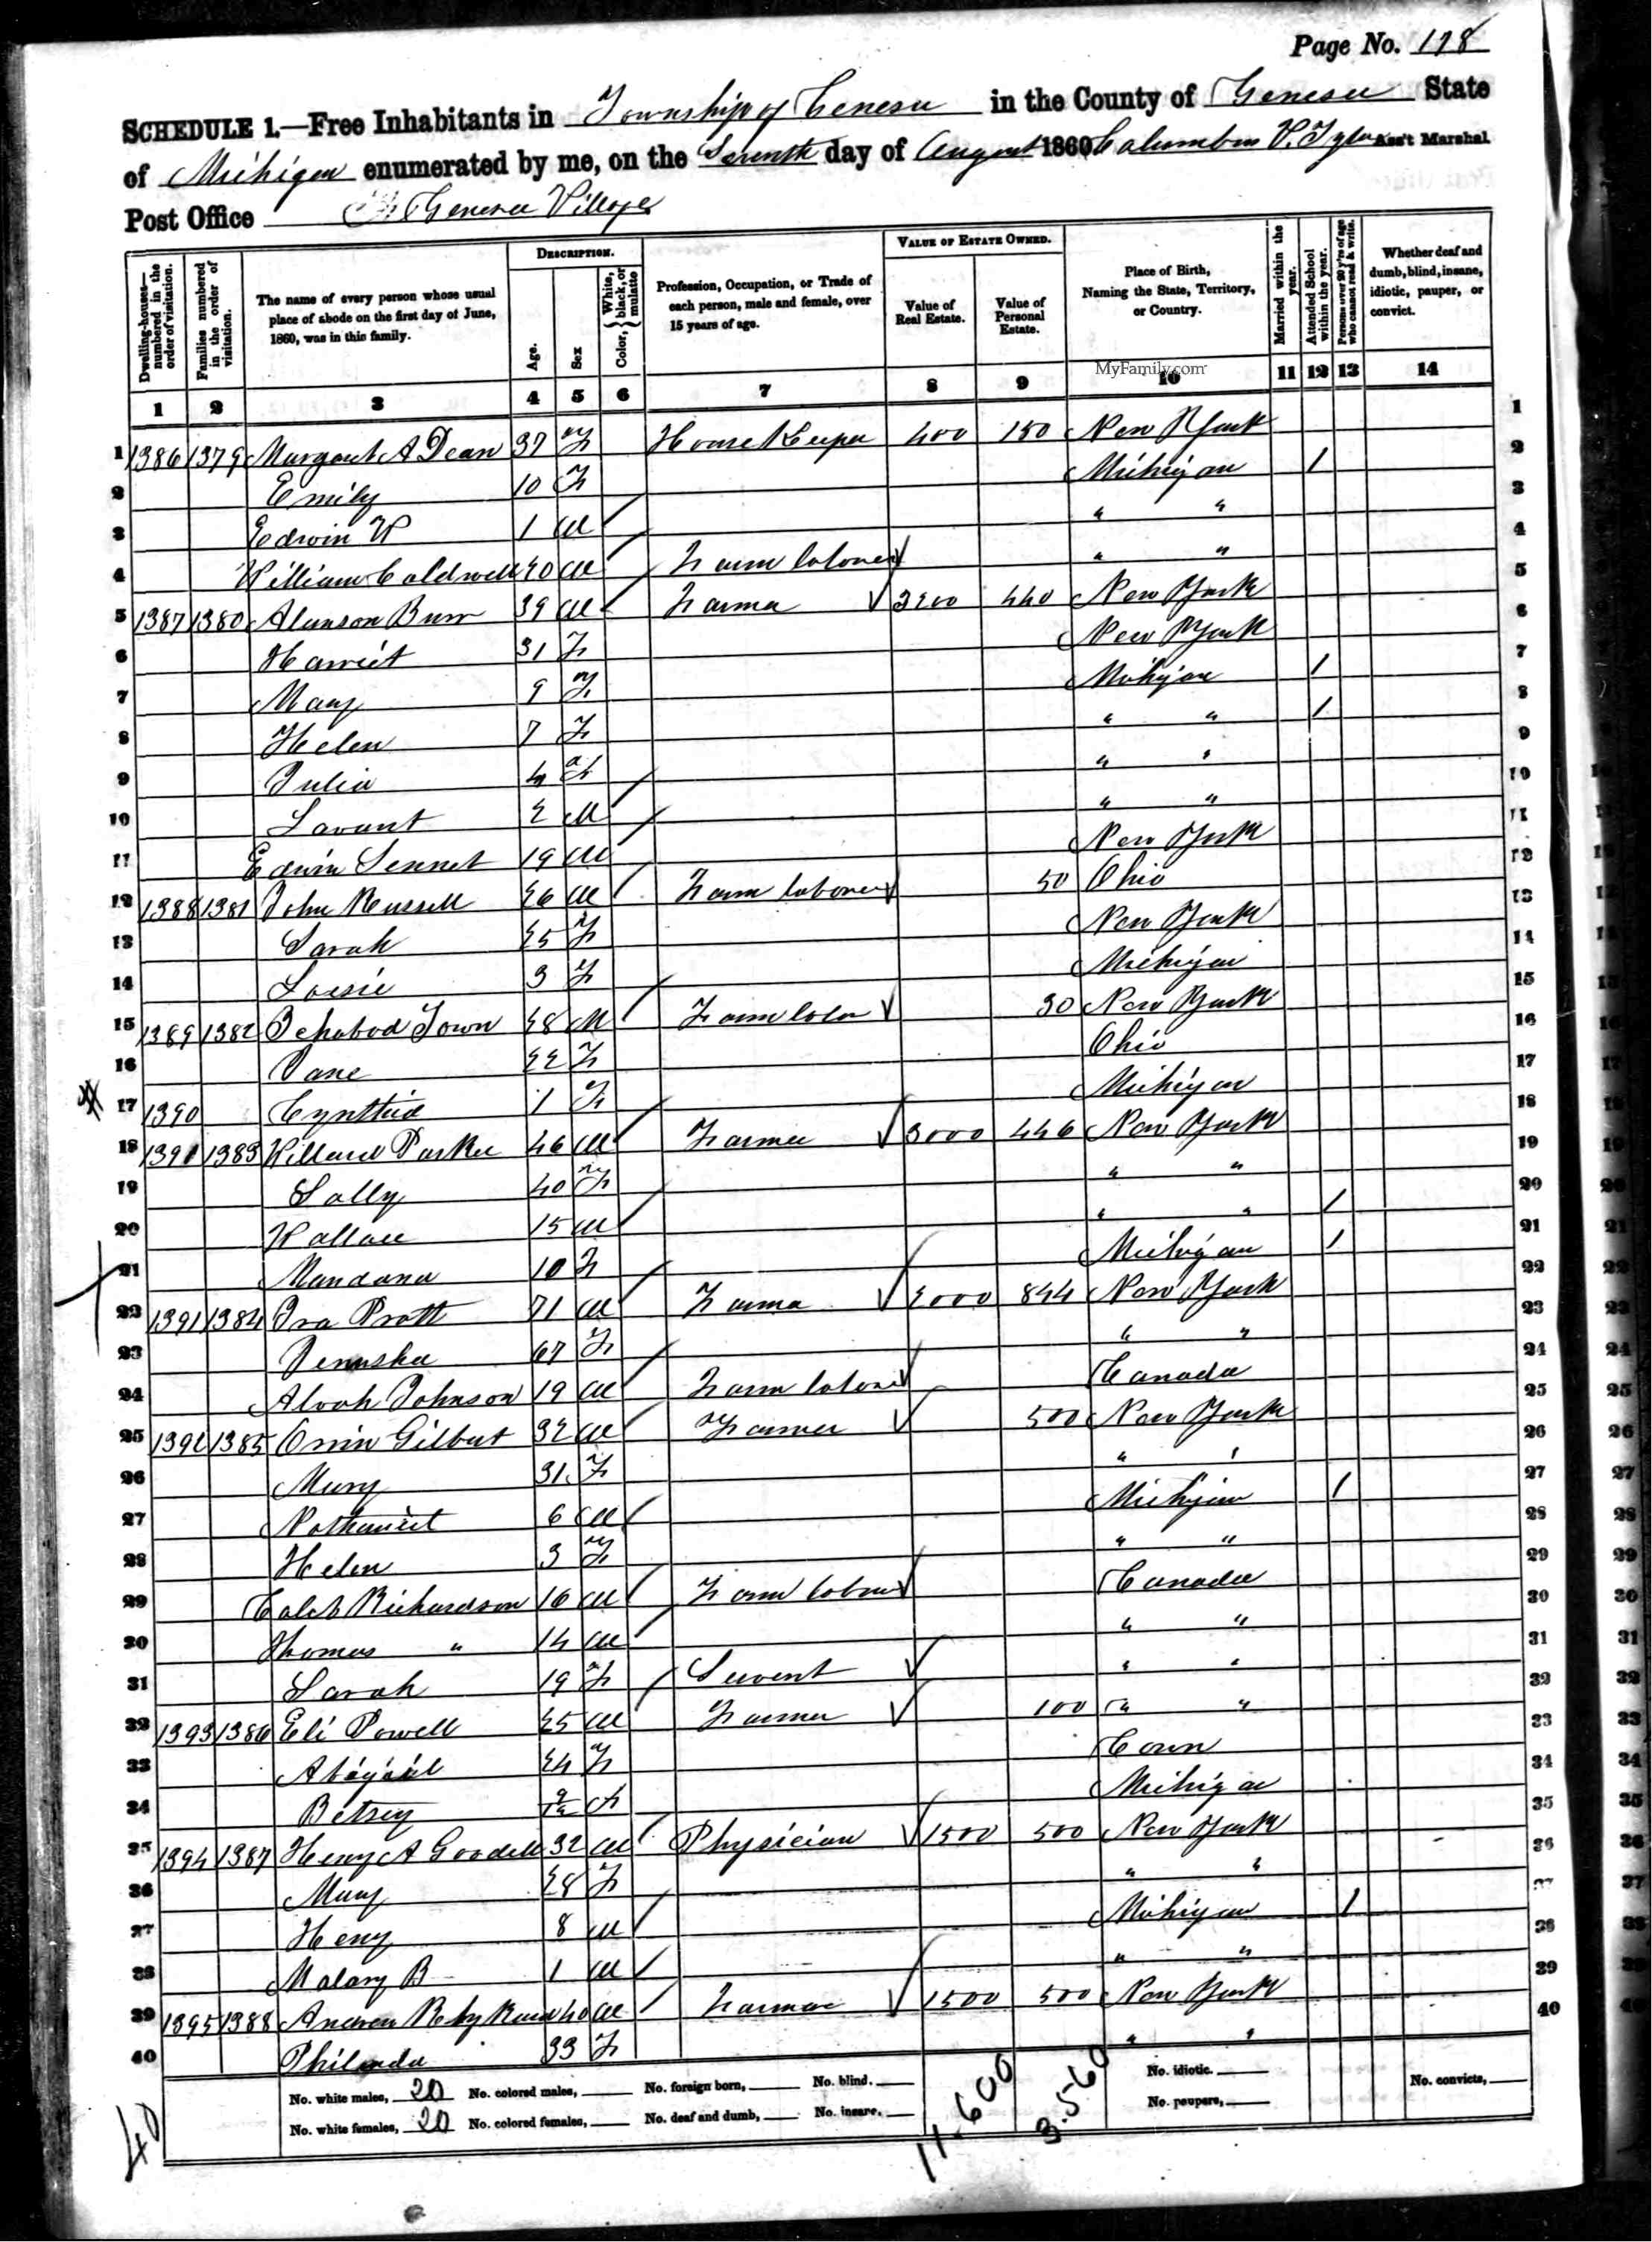 Page No. 178
SCHEDULE 1.—Free Inhabitants in Township of Genesee in the County of Genesee State
of Michigan enumerated by me, on the Seventh day of August 1860 Columbus V. Tyler Ass't Marshal
Post Office Genesee Village
Dwelling-houses—numbered in the order of visitation. Families numbered in the order of visitation. The name of every person whose usual place of abode on the first day of June, 1860, was in this family. DESCRIPTION. Age. Sex Color, White, black, or mulatto Profession, Occupation, or Trade of each person, male and female, over 15 years of age. VALUE OF ESTATE OWNED. Value of Real Estate. Value of Personal Estate. Place of Birth, Naming the State, Territory, or Country. Married within the year. Attended School within the year. Persons over 20 y'rs of age who cannot read & write. Whether deaf and dumb, blind, insane, idiotic, pauper, or convict.
MyFamily.com
1 2 3 4 5 6 7 8 9 10 11 12 13 14
1 1386 1379 Margaret A Dean 37 F House Keeper 400 150 New York 1
2 Emily 10 F Michigan 1 2
3 Edwin 1 M / " " 3
4 William Caldwell 40 M / Farm laborer " " 4
5 1387 1380 Alanson Burr 39 M / Farmer 3200 440 New York 5
6 Harriet 31 F New York 6
7 Mary 9 F Michigan 1 7
8 Helen 7 F " " 1 8
9 Julia 4 F " " 9
10 Lavant 2 M / " " 10
11 Edwin Sennet 19 M / New York 11
12 1388 1381 John Russell 26 M / Farm laborer 50 Ohio 12
13 Sarah 25 F New York 13
14 Losie 3 F Michigan 14
15 1389 1382 Ichabod Town 28 M / Farm labor 30 New York 15
16 Jane 22 F Ohio 16
17 1390 Cynthia 1 F Michigan 17
18 1391 1383 Willard Parker 46 M / Farmer 3000 446 New York 18
19 Sally 40 F " " 19
20 Wallace 15 M / " " 1 20
21 Mandana 10 F Michigan 1 21
22 1391 1384 Ira Pratt 71 M / Farmer 2000 844 New York 22
23 Jerusha 67 F " " 23
24 Alvah Johnson 19 M / Farm laborer Canada 24
25 1392 1385 Orrin Gilbert 32 M / Farmer 500 New York 25
26 Mary 31 F " " 26
27 Nathaniel 6 M / Michigan 1 27
28 Helen 3 F " " 28
29 Caleb Richardson 16 M / Farm laborer Canada 29
30 Thomas " 14 M / " " 30
31 Sarah 19 F / Servent " " 31
32 1393 1386 Eli Powell 25 M Farmer 100 " " 32
33 Abigail 24 F Conn 33
34 Betsey 2/12 F Michigan 34
35 1394 1387 Henry A Goodell 32 M / Physician 1500 500 New York 35
36 Mary 28 F " " 36
37 Henry 8 M / Michigan 1 37
38 B 1 M / " " 38
39 1395 1388 Andrew 40 M / Farmer 1500 500 New York 39
40 Philinda 33 F " " 40
No. white males, 20 No. colored males, No. foreign born, No. blind. No. idiotic. No. convicts,
No. white females, 20 No. colored females, No. deaf and dumb, No. insane, No. paupers,
11.600
3.560
40